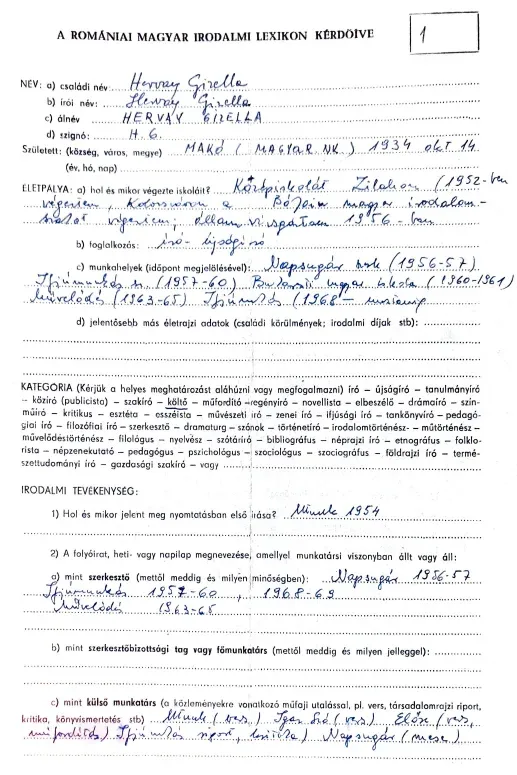 A ROMÁNIAI MAGYAR IRODALMI LEXIKON KÉRDŐÍVE
1
NÉV: a) családi név Hervay Gizella
b) írói név: Hervay Gizella
c) álnév HERVAY GIZELLA
d) szignó: H. G.
Született: (község, város, megye) MAKÓ ( MAGYAR NK. ) 1934 okt 14
(év, hó, nap)
ÉLETPÁLYA: a) hol és mikor végezte iskoláit? Középiskolát Zilahon (1952-ben
végeztem, Kolozsváron a Bólyain magyar irodalom-
szakot végeztem; államvizsgáztam 1956-ban
b) foglalkozás: író-újságíró
c) munkahelyek (időpont megjelölésével): Napsugár (1956-57)
Ifjúmunkás (1957-60) Bukaresti magyar iskola (1960-1961)
Művelődés (1963-65) Ifjúmunkás (1968-
d) jelentősebb más életrajzi adatok (családi körülmények; irodalmi díjak stb):
KATEGÓRIA (Kérjük a helyes meghatározást aláhúzni vagy megfogalmazni) író – újságíró – tanulmányíró
– közíró (publicista) – szakíró – költő – műfordító –regényíró – novellista – elbeszélő – drámaíró – szín-
műíró – kritikus – esztéta – esszéista – művészeti író – zenei író – ifjúsági író – tankönyvíró – pedagó-
giai író – filozófiai író – szerkesztő – dramaturg – szónok – történetíró – irodalomtörténész- – műtörténész –
művelődéstörténész – filológus – nyelvész – szótáríró – bibliográfus – néprajzi író – etnográfus – folklo-
rista – népzenekutató – pedagógus – pszichológus – szociológus – szociográfus – földrajzi író – termé-
szettudományi író – gazdasági szakíró – vagy
IRODALMI TEVÉKENYSÉG:
1) Hol és mikor jelent meg nyomtatásban első írása? Utunk 1954
2) A folyóirat, heti- vagy napilap megnevezése, amellyel munkatársi viszonyban állt vagy áll:
a) mint szerkesztő (mettől meddig és milyen minőségben): Napsugár 1956-57
Ifjúmunkás 1957-60, 1968-69
Művelődés 1963-65
b) mint szerkesztőbizottsági tag vagy főmunkatárs (mettől meddig és milyen jelleggel):
c) mint külső munkatárs (a közleményekre vonatkozó műfaji utalással, pl. vers, társadalomrajzi riport,
kritika, könyvismertetés stb) Utunk (vers) Igaz Szó (vers) Előre (vers,
műfordítás) Ifjúmunkás riport, kritika) Napsugár (mese)